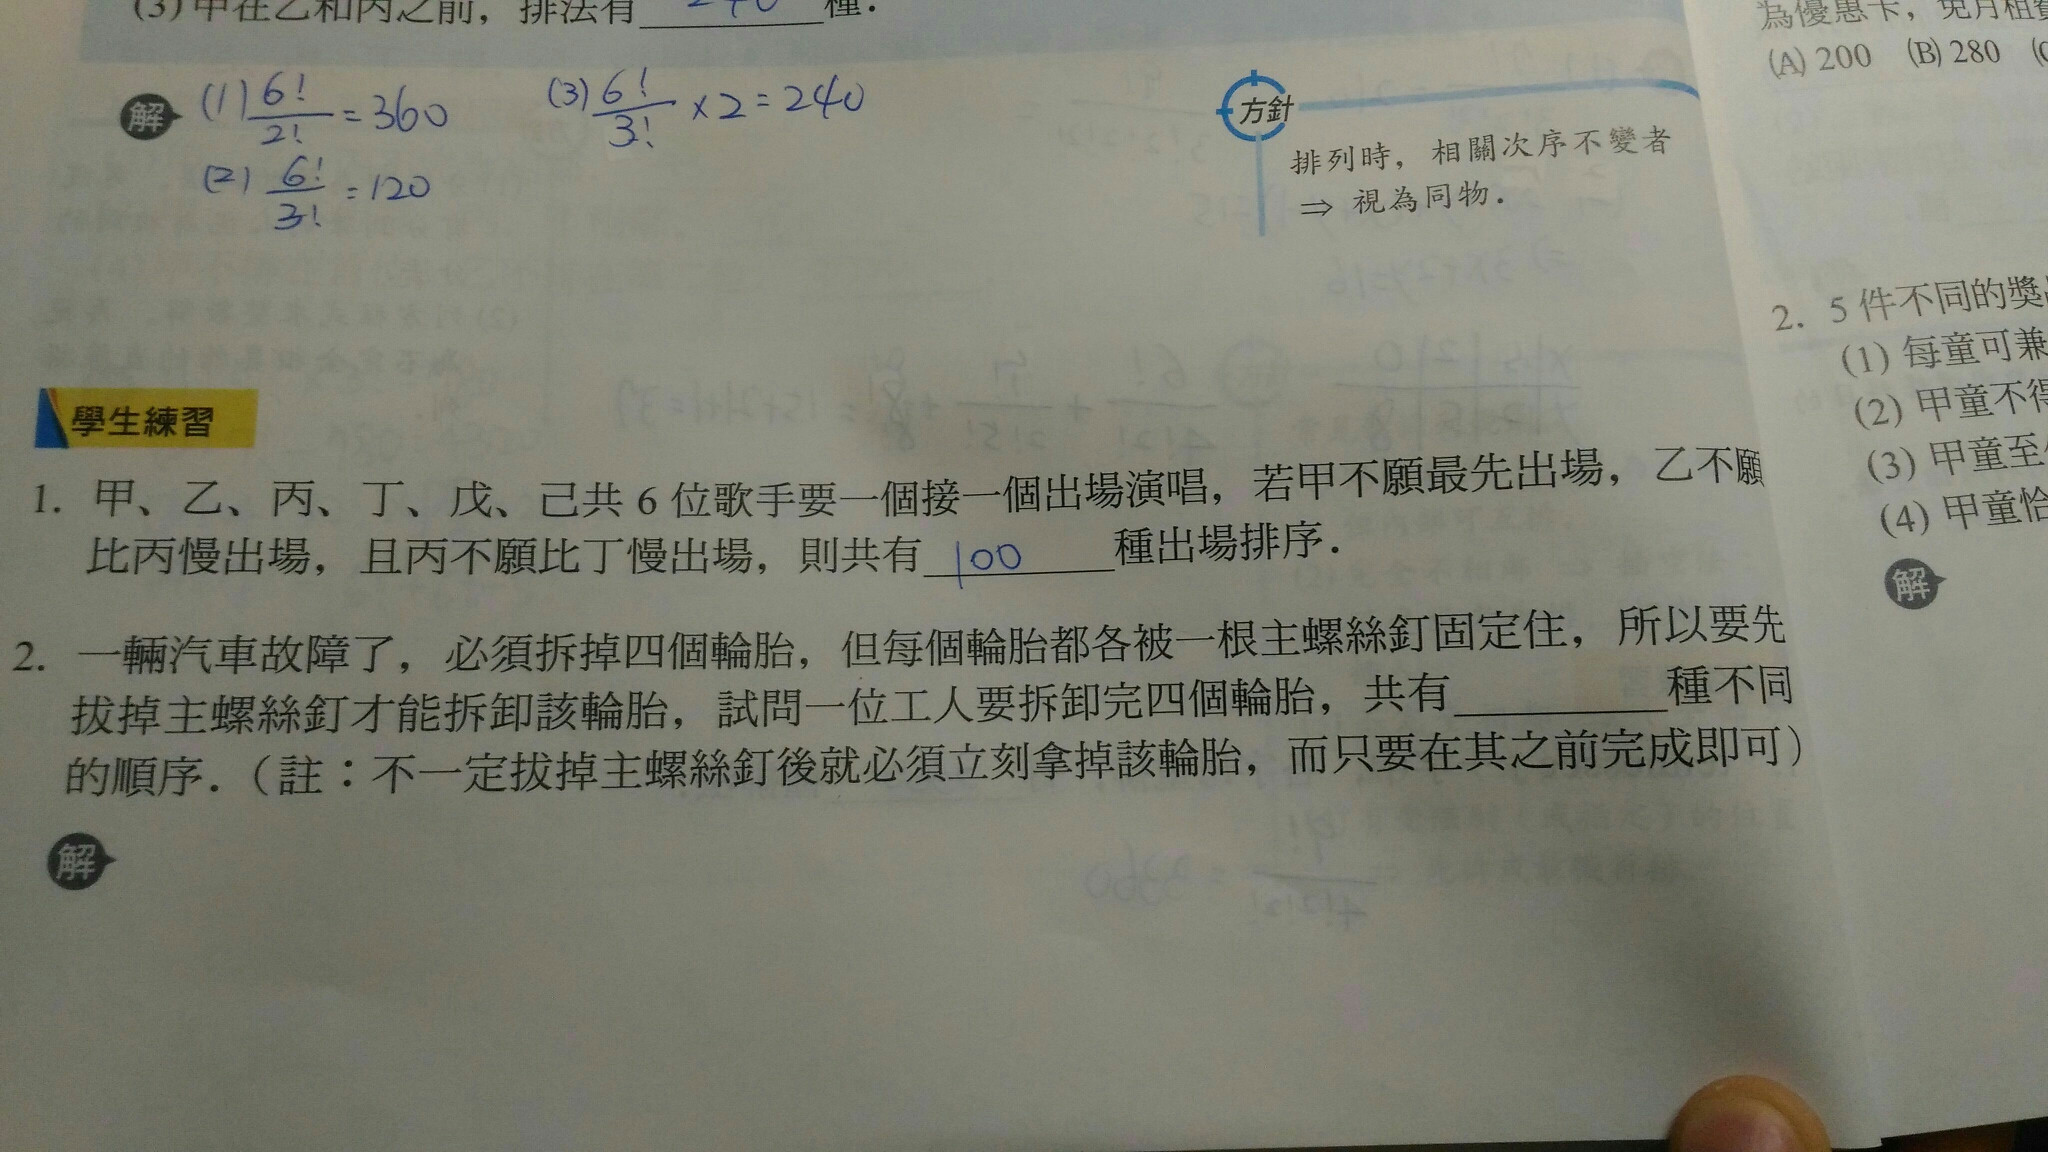 (3) 甲在乙和丙之前，排法有 240 種．
解 (1) 6!/2! = 360 (3) 6!/3! × 2 = 240
(2) 6!/3! = 120
方針
排列時，相關次序不變者
⇒ 視為同物．
學生練習
1. 甲、乙、丙、丁、戊、己共 6 位歌手要一個接一個出場演唱，若甲不願最先出場，乙不願
比丙慢出場，且丙不願比丁慢出場，則共有 100 種出場排序．
2. 一輛汽車故障了，必須拆掉四個輪胎，但每個輪胎都各被一根主螺絲釘固定住，所以要先
拔掉主螺絲釘才能拆卸該輪胎，試問一位工人要拆卸完四個輪胎，共有 種不同
的順序．（註：不一定拔掉主螺絲釘後就必須立刻拿掉該輪胎，而只要在其之前完成即可）
解
為優惠卡，免月租
(A) 200 (B) 280
2. 5 件不同的獎
(1) 每童可兼
(2) 甲童不得
(3) 甲童至
(4) 甲童恰
解